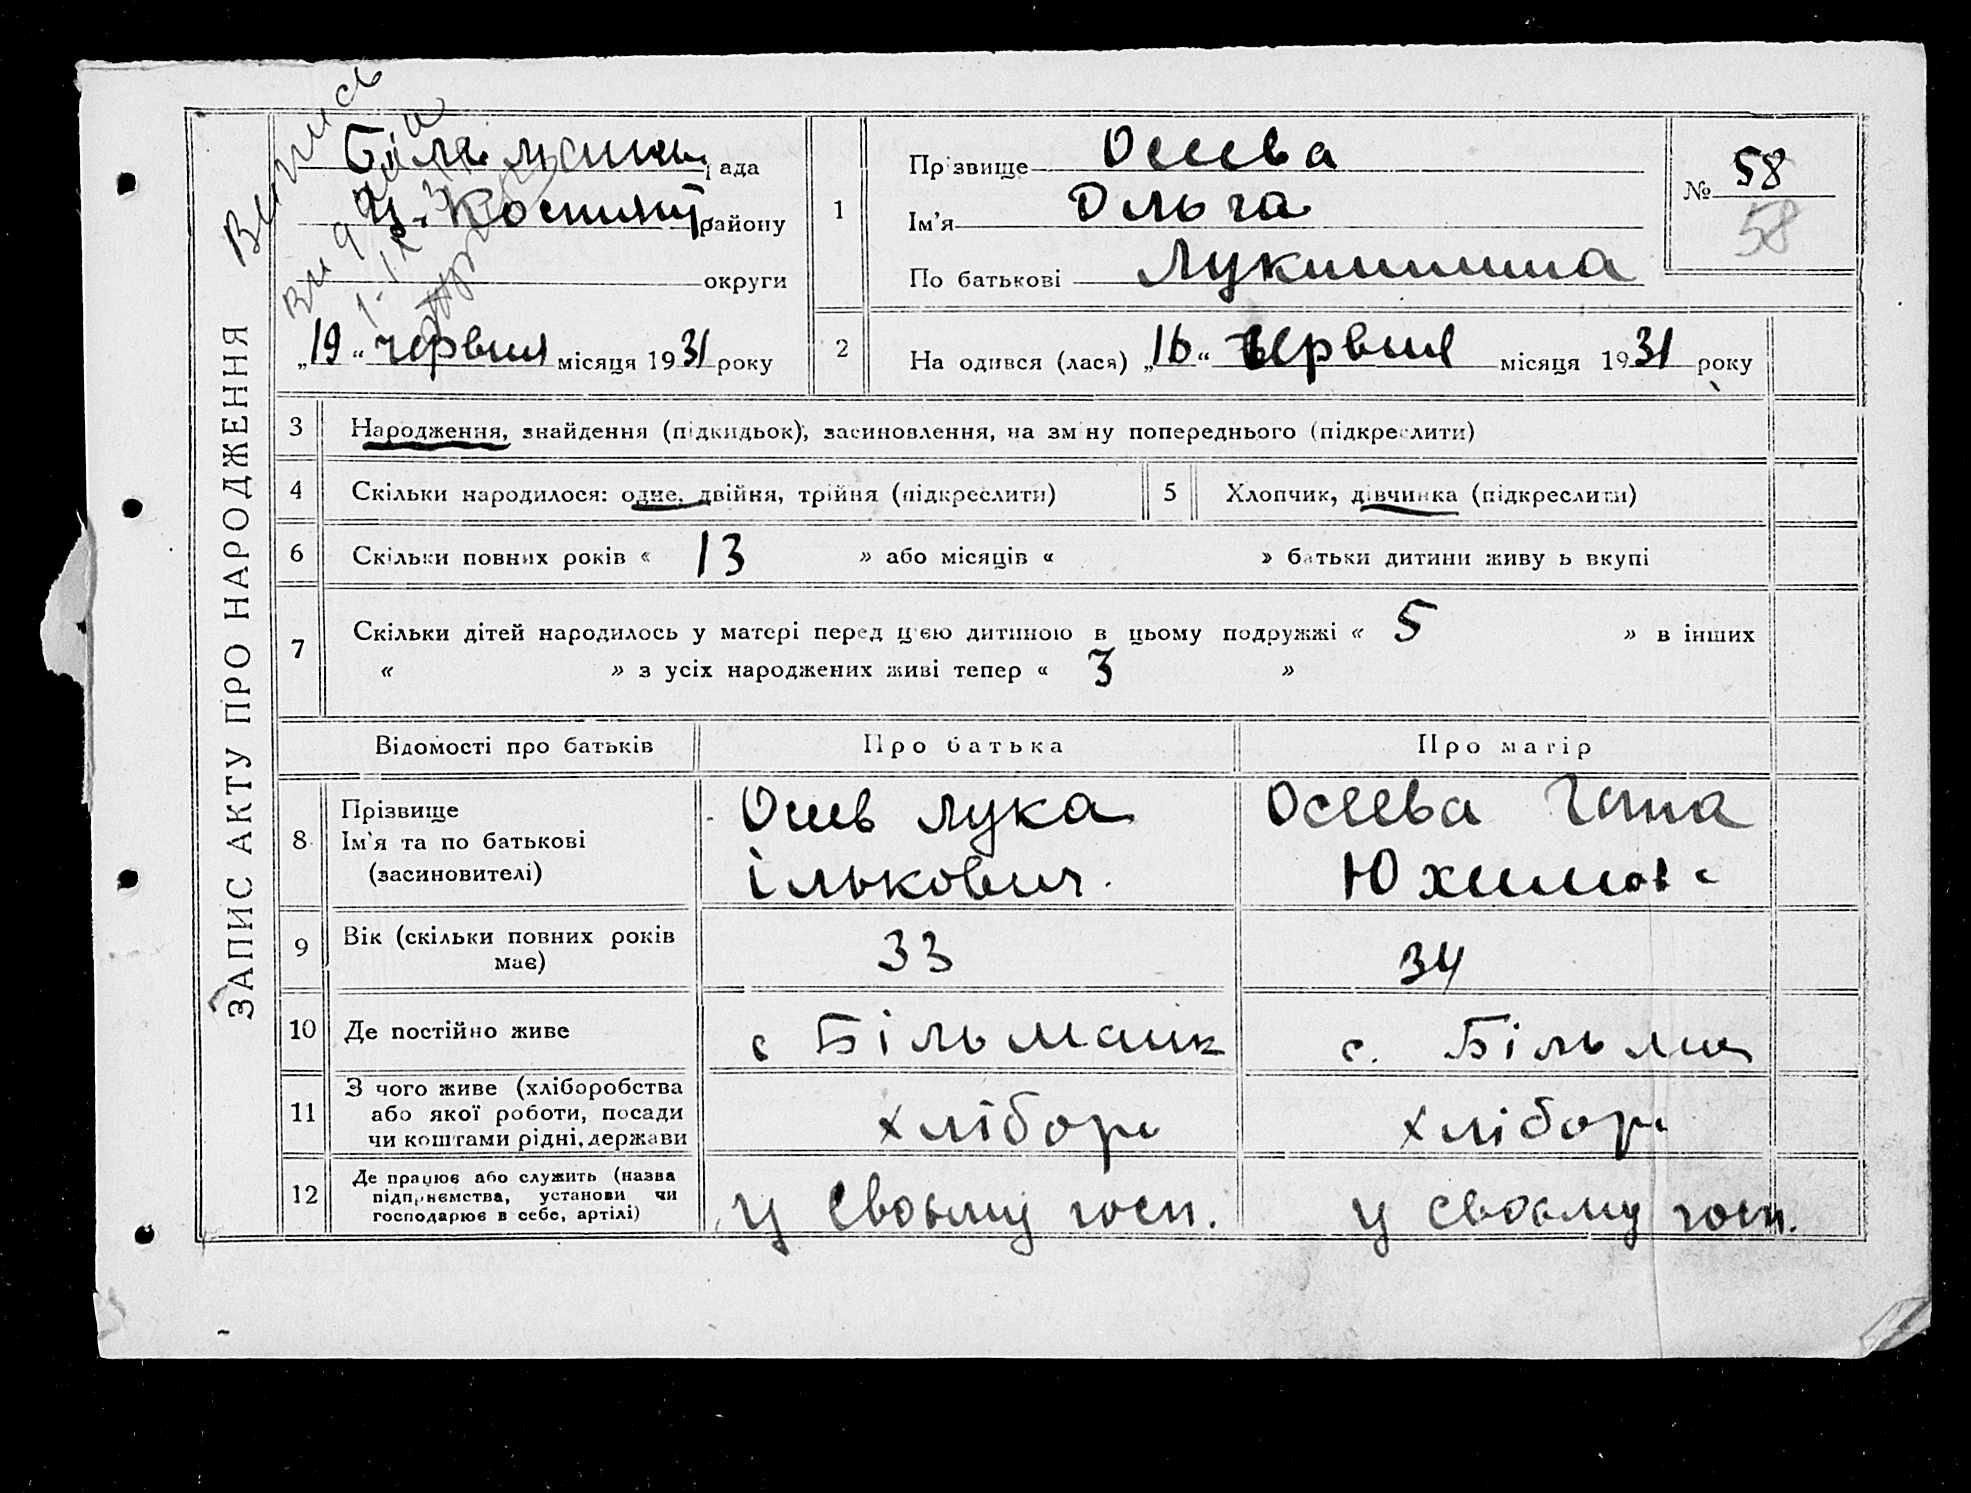 ЗАПИС АКТУ ПРО НАРОДЖЕННЯ
Випись
рада
району
округи
„19“ червня місяця 1931 року
1
Прізвище Осєєва
Ім'я Ольга
По батькові
№ 58
58
2
Народився (лася) „16“ червня місяця 1931 року
3 Народження, знайдення (підкидьок), засиновлення, на зміну попереднього (підкреслити)
4 Скільки народилося: одне, двійня, трійня (підкреслити)
5 Хлопчик, дівчинка (підкреслити)
6 Скільки повних років « 13 » або місяців « » батьки дитини живуть вкупі
7 Скільки дітей народилось у матері перед цією дитиною в цьому подружжі « 5 » в інших
« » з усіх народжених живі тепер « 3 »
Відомості про батьків Про батька Про матір
8 Прізвище
Ім'я та по батькові
(засиновителі)
Осєєв Лука
Ількович.
Осєєва Гана
Юхимов
9 Вік (скільки повних років
має)
33
34
10 Де постійно живе
с Більманк
с. Більма
11 З чого живе (хліборобства
або якої роботи, посади
чи коштами рідні, держави
хлібор
хлібор
12 Де працює або служить (назва
підприємства, установи чи
господарює в себе, артілі)
у своєму госп.
у своєму госп.